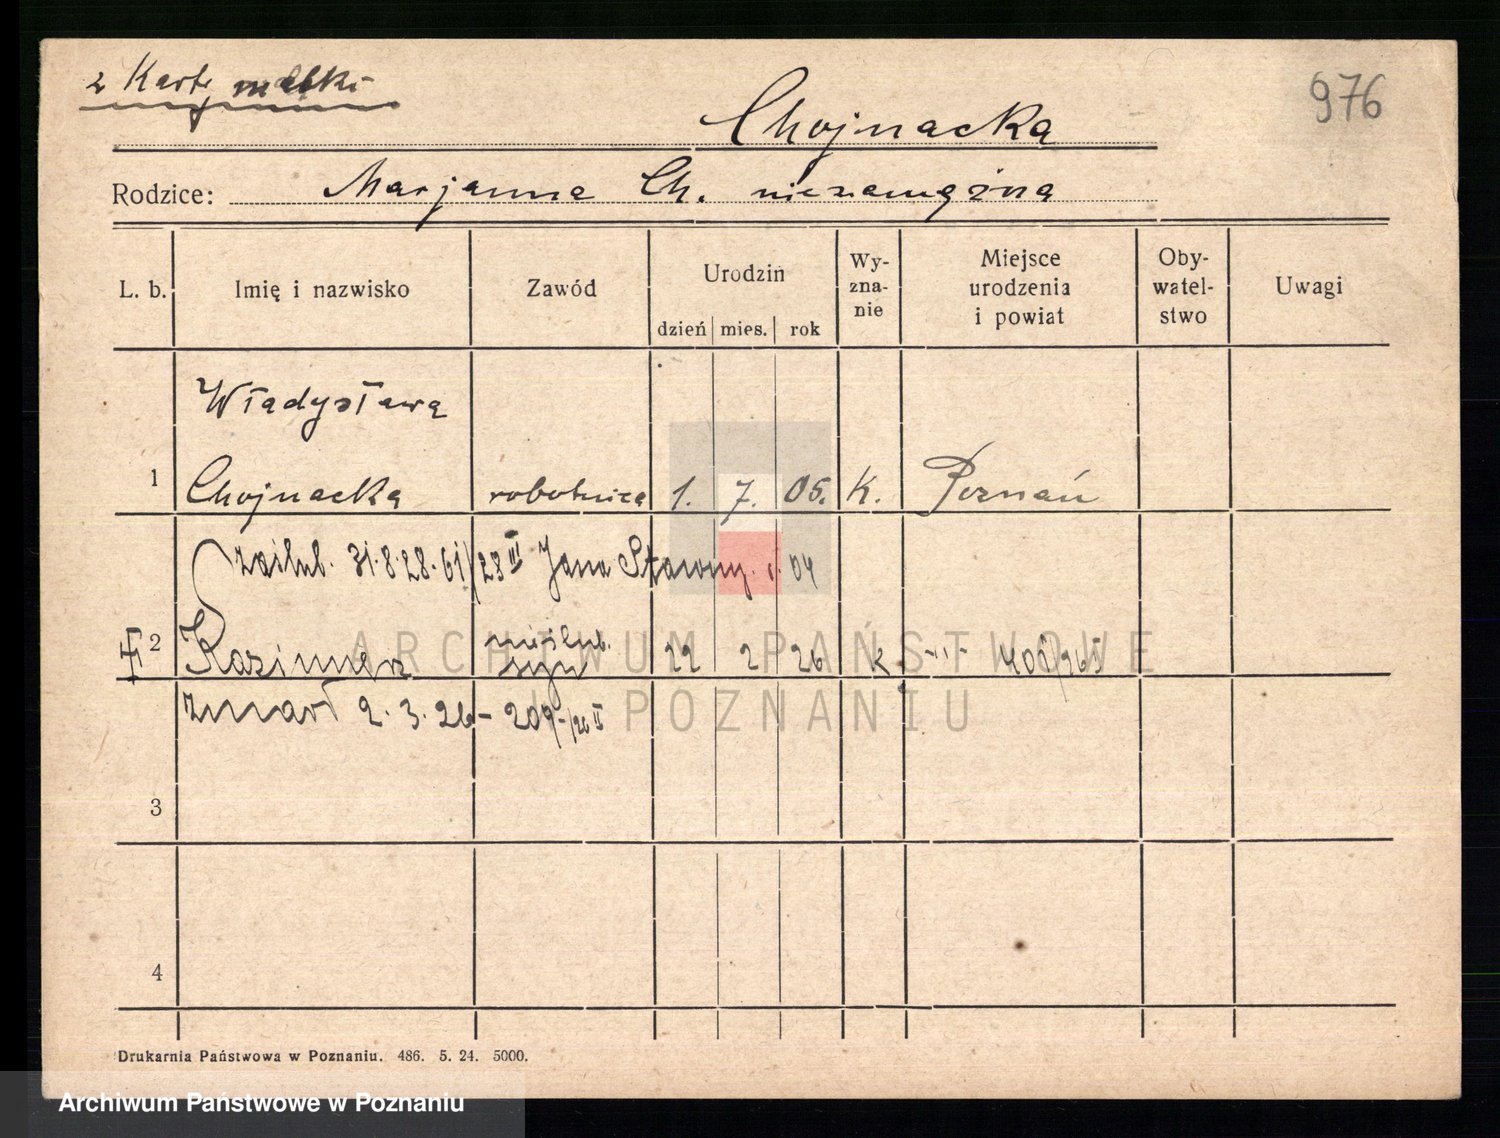 z Karty matki
976
Chojnacka
Rodzice: Marjanna Ch. niezamężna
L. b. Imię i nazwisko Zawód Urodzin dzień mies. rok Wy-zna-nie Miejsce urodzenia i powiat Oby-watel-stwo Uwagi
Władysława
1 Chojnacka robotnica 1. 7. 05. K. Poznań
zaślub. 31.8.28. 61/28 III Jana Stawny. 04
2 Kazimierz nieślub. syn 22 2 26 k -"-
zmarł 2. 3. 26 - 209/26 II
3
4
Drukarnia Państwowa w Poznaniu. 486. 5. 24. 5000.
ARCHIWUM PAŃSTWOWE
W POZNANIU
Archiwum Państwowe w Poznaniu